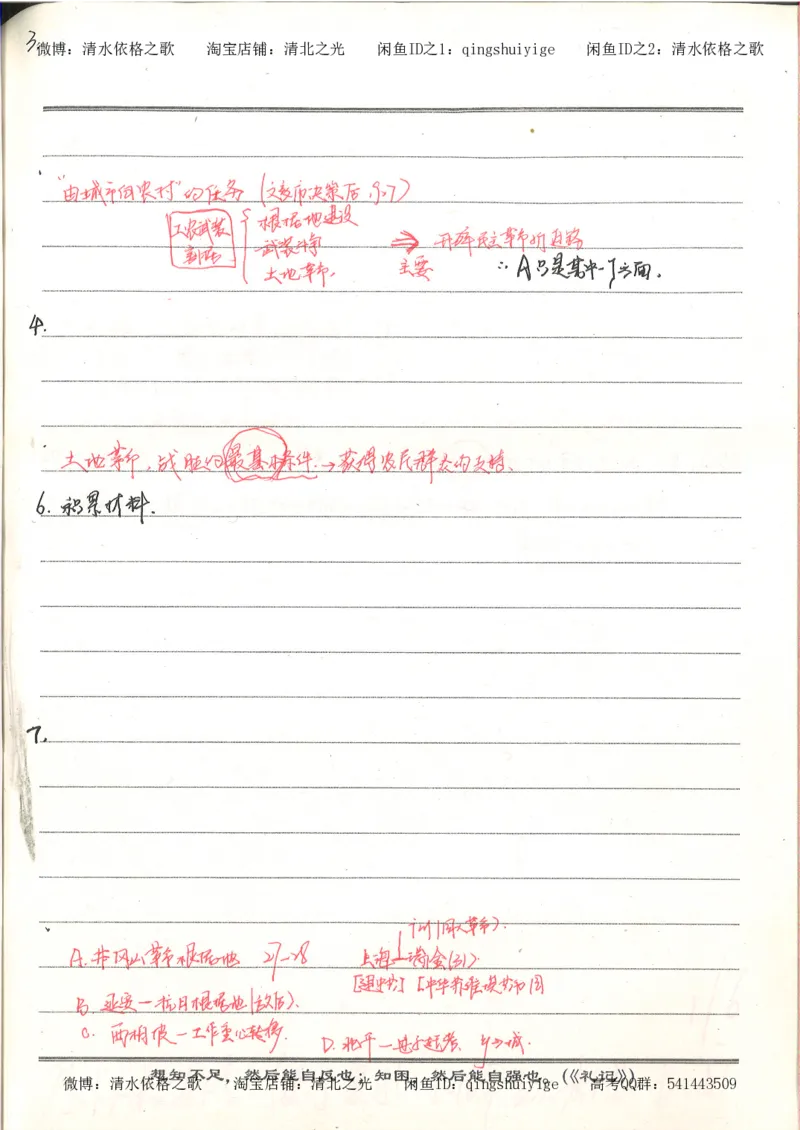 微博：清水依格之歌 淘宝店铺：清北之光 闲鱼ID之1：qingshuiyige 闲鱼ID之2：清水依格之歌
3
"由城市向农村"的任务（文家市决策后 9.7）
工农武装割据 { 根据地建设
武装斗争
土地革命
⇒ 主要 开辟民主革命的道路
∴A只是其中一个方面。
4.
土地革命，战胜的最基本条件→获得农民群众的支持、
6. 积累材料.
7.
A. 井冈山革命根据地 27-28
上海—瑞金(31)
[中华苏维埃共和国
B. 延安—抗日根据地(敌后).
C. 西柏坡—工作重心转移.
D. 北平—进京赶考、乡→城.
想知不足，然后能自反也；知困，然后能自强也。(《礼记》)
微博：清水依格之歌 淘宝店铺：清北之光 闲鱼ID之1：qingshuiyige 高考QQ群：541443509